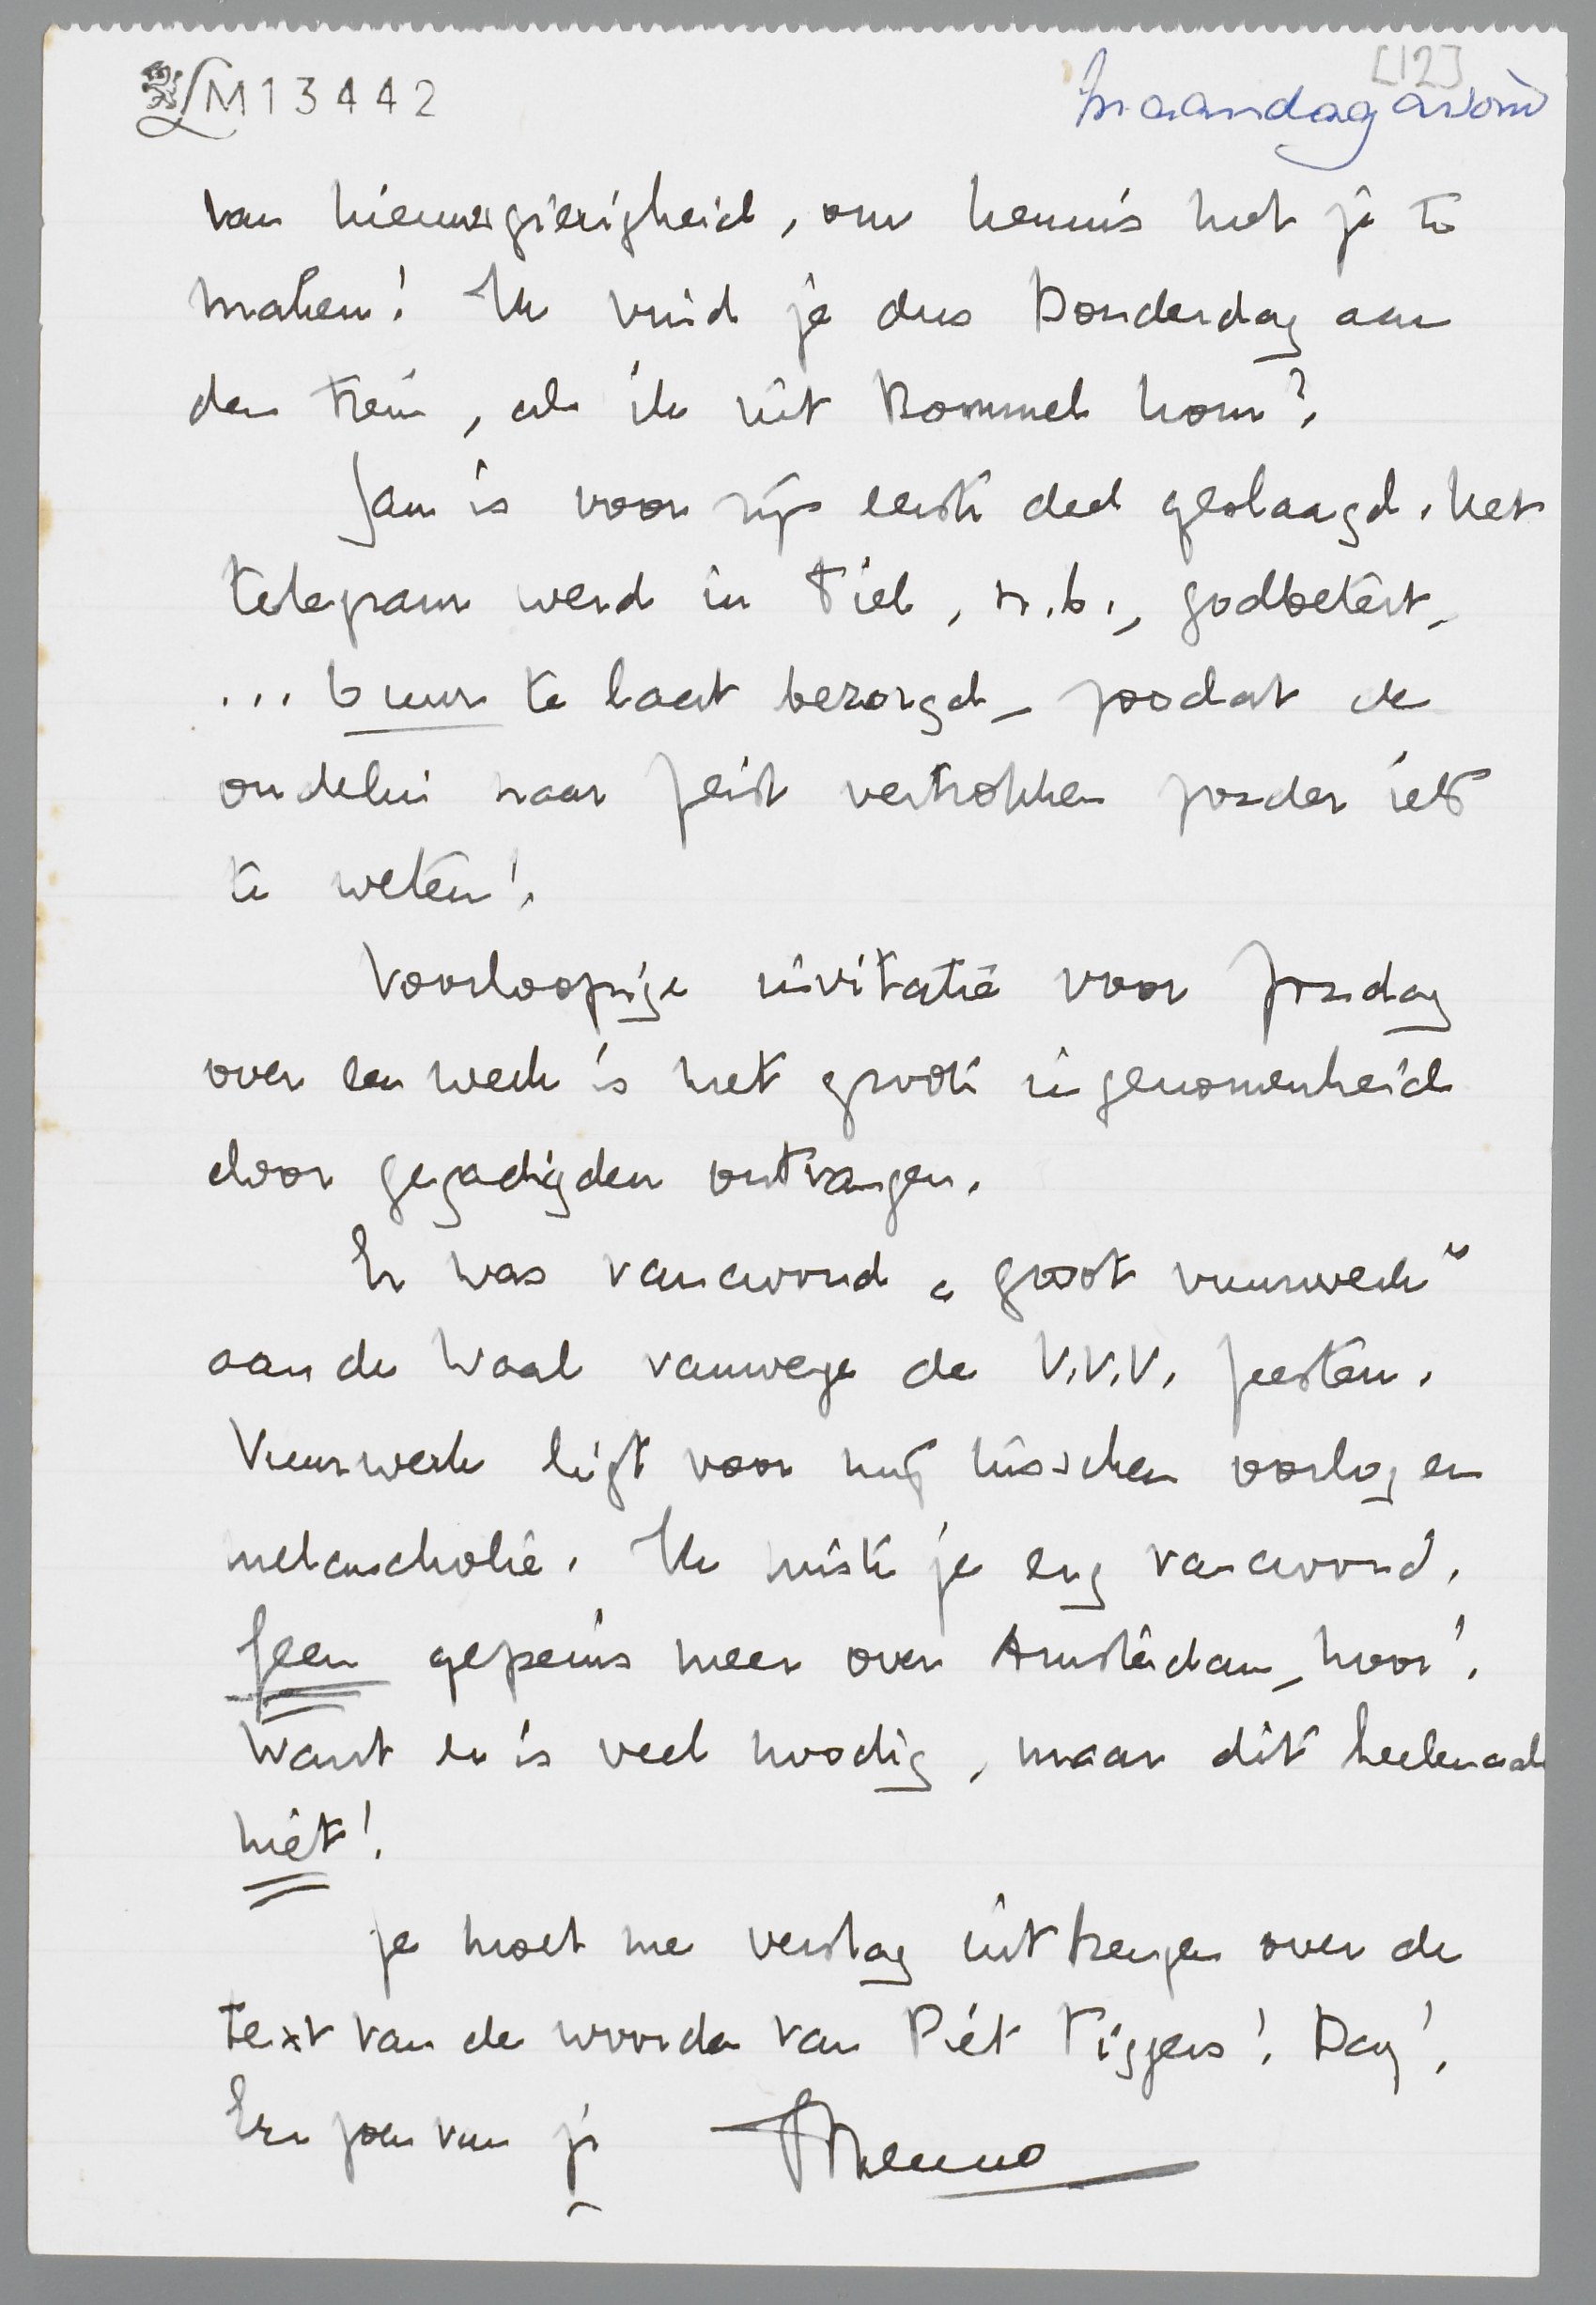 LM13442
[12]
Maandagavond
van nieuwsgierigheid, om kennis met je te
maken! Ik vind je dus Donderdag aan
den trein, als ik uit Bommel kom?
Jan is voor zijn eerste deel geslaagd. Het
telegram werd in Tiel, n.b., godbetert,
... 6 uur te laat bezorgd, zoodat de
oudelui naar Zeist vertrokken zonder iets
te weten!
Voorloopige invitatie voor Zondag
over een week is met groote ingenomenheid
door gegadigden ontvangen.
Er was vanavond „groot vuurwerk"
aan de Waal vanwege de V.V.V. feesten.
Vuurwerk ligt voor mij tusschen oorlog en
melancholie. Ik miste je erg vanavond.
Geen gepeins meer over Amsterdam, hoor!
Want er is veel noodig, maar dit heelemaal
niet!
Je moet me verslag uitbrengen over de
text van de woorden van Piet Tiggers! Dag!
Een zoen van je Menno